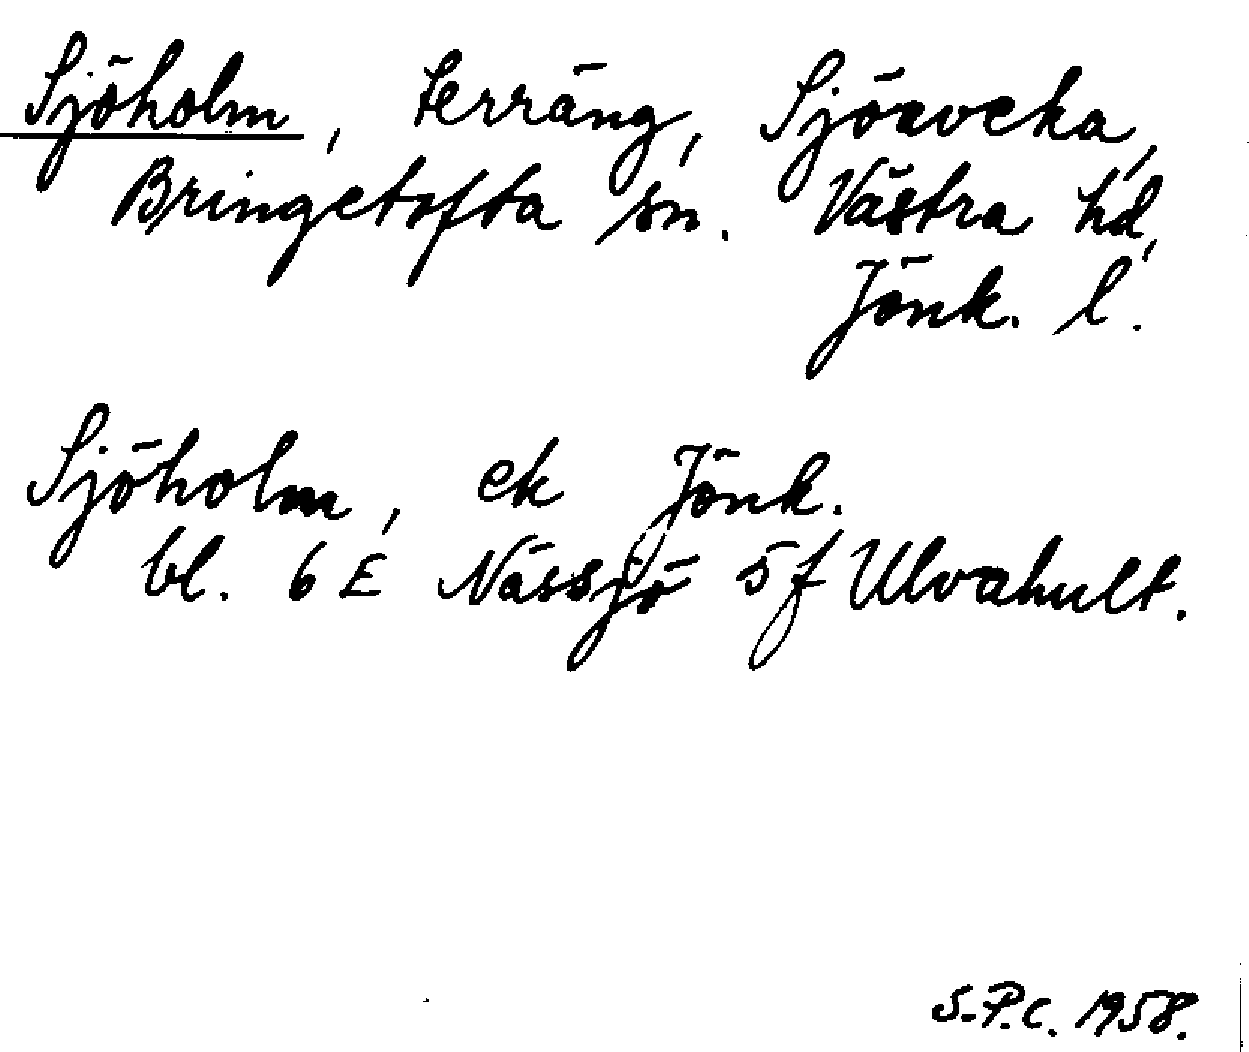 Sjöholm, terräng, Sjöaveka,
Bringetofta sn. Västra hd,
Jönk. l.
Sjöholm, ek Jönk.
bl. 6 E Nässjö 5 f Ulvahult.
S.P.C. 1958.